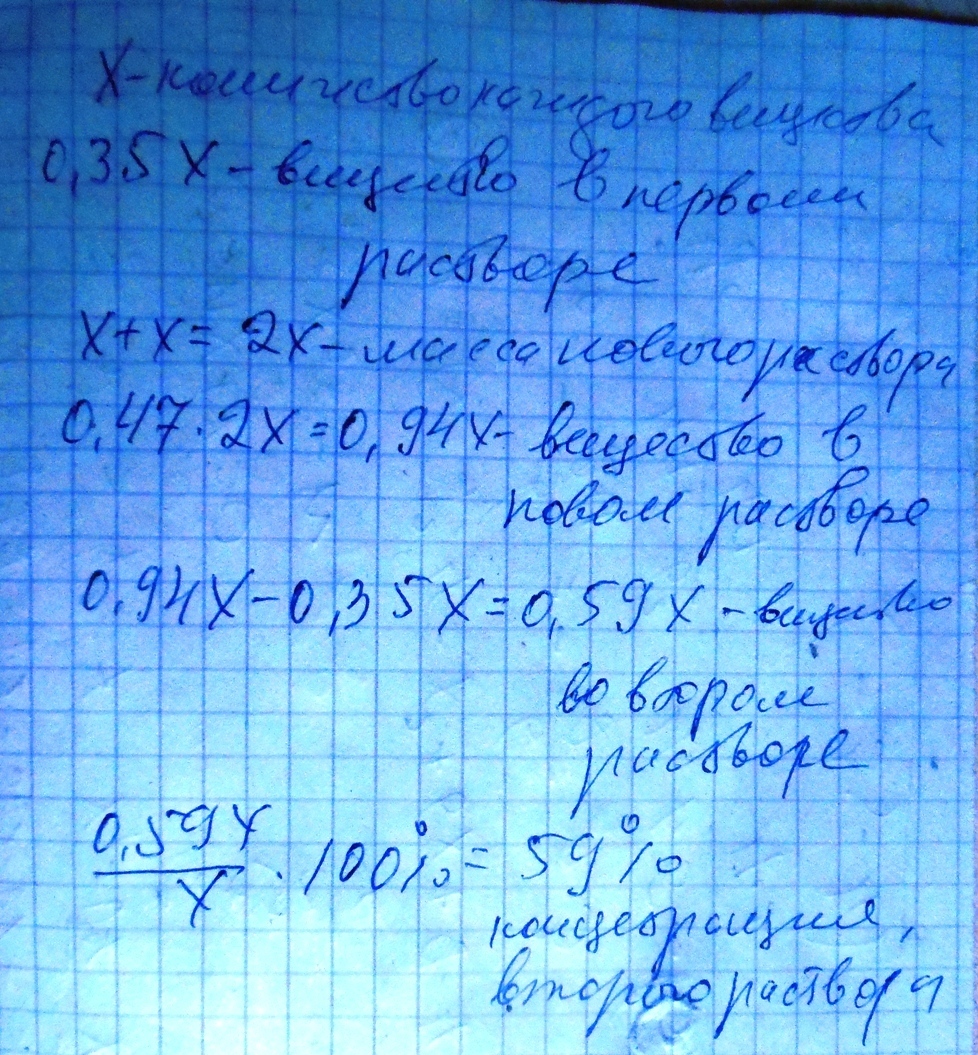 X-количество каждого вещества
0,35X - вещество в первом
растворе
X+X=2X-масса нового раствора
0,47·2X=0,94X- вещество в
новом растворе
0,94X-0,35X=0,59X - вещество
во втором
растворе
0,59X/X · 100%=59%
концентрация
второго раствора